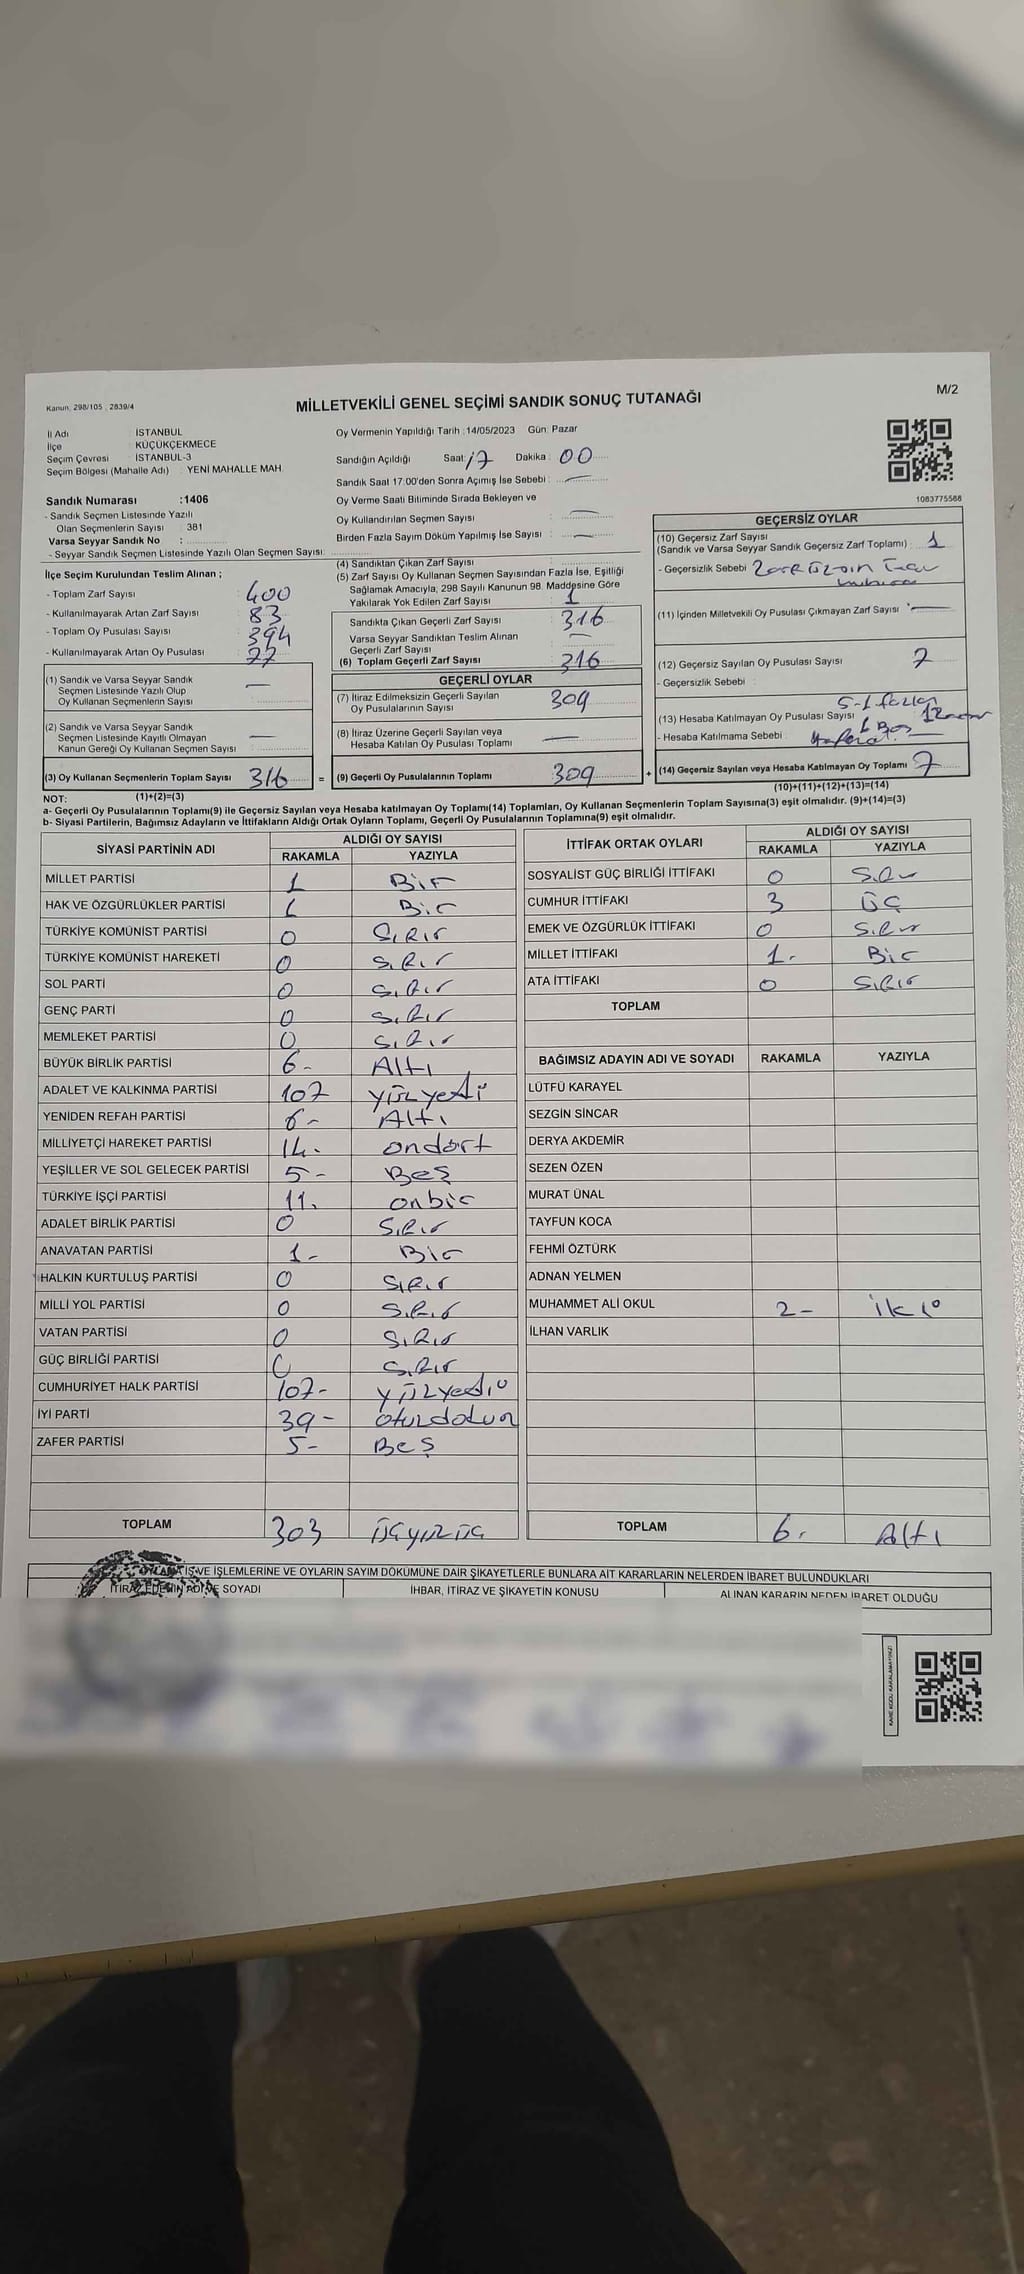 Kanun; 298/105 , 2839/4
MİLLETVEKİLİ GENEL SEÇİMİ SANDIK SONUÇ TUTANAĞI
M/2
İl Adı : İSTANBUL
İlçe : KÜÇÜKÇEKMECE
Seçim Çevresi : İSTANBUL-3
Seçim Bölgesi (Mahalle Adı) : YENİ MAHALLE MAH.
Oy Vermenin Yapıldığı Tarih :14/05/2023 Gün: Pazar
Sandığın Açıldığı Saat: 17 Dakika : 00
Sandık Saat 17:00'den Sonra Açımış İse Sebebi : —
Oy Verme Saati Bitiminde Sırada Bekleyen ve
Oy Kullandırılan Seçmen Sayısı —
Birden Fazla Sayım Döküm Yapılmış İse Sayısı : —
1083775588
Sandık Numarası :1406
- Sandık Seçmen Listesinde Yazılı
Olan Seçmenlerin Sayısı : 381
Varsa Seyyar Sandık No :
- Seyyar Sandık Seçmen Listesinde Yazılı Olan Seçmen Sayısı:
İlçe Seçim Kurulundan Teslim Alınan ;
- Toplam Zarf Sayısı : 400
- Kullanılmayarak Artan Zarf Sayısı : 83
- Toplam Oy Pusulası Sayısı : 394
- Kullanılmayarak Artan Oy Pusulası : 77
(1) Sandık ve Varsa Seyyar Sandık
Seçmen Listesinde Yazılı Olup
Oy Kullanan Seçmenlerin Sayısı —
(2) Sandık ve Varsa Seyyar Sandık
Seçmen Listesinde Kayıtlı Olmayan
Kanun Gereği Oy Kullanan Seçmen Sayısı : —
(3) Oy Kullanan Seçmenlerin Toplam Sayısı 316 =
(4) Sandıktan Çıkan Zarf Sayısı
(5) Zarf Sayısı Oy Kullanan Seçmen Sayısından Fazla İse, Eşitliği
Sağlamak Amacıyla, 298 Sayılı Kanunun 98. Maddesine Göre
Yakılarak Yok Edilen Zarf Sayısı 1
Sandıkta Çıkan Geçerli Zarf Sayısı 316
Varsa Seyyar Sandıktan Teslim Alınan
Geçerli Zarf Sayısı —
(6) Toplam Geçerli Zarf Sayısı 316
GEÇERLİ OYLAR
(7) İtiraz Edilmeksizin Geçerli Sayılan
Oy Pusulalarının Sayısı 309
(8) İtiraz Üzerine Geçerli Sayılan veya
Hesaba Katılan Oy Pusulası Toplamı —
(9) Geçerli Oy Pusulalarının Toplamı 309 +
GEÇERSİZ OYLAR
(10) Geçersiz Zarf Sayısı
(Sandık ve Varsa Seyyar Sandık Geçersiz Zarf Toplamı) : 1
- Geçersizlik Sebebi
(11) İçinden Milletvekili Oy Pusulası Çıkmayan Zarf Sayısı : —
(12) Geçersiz Sayılan Oy Pusulası Sayısı 7
- Geçersizlik Sebebi :
(13) Hesaba Katılmayan Oy Pusulası Sayısı
- Hesaba Katılmama Sebebi :
(14) Geçersiz Sayılan veya Hesaba Katılmayan Oy Toplamı 7
(10)+(11)+(12)+(13)=(14)
NOT: (1)+(2)=(3)
a- Geçerli Oy Pusulalarının Toplamı(9) ile Geçersiz Sayılan veya Hesaba katılmayan Oy Toplamı(14) Toplamları, Oy Kullanan Seçmenlerin Toplam Sayısına(3) eşit olmalıdır. (9)+(14)=(3)
b- Siyasi Partilerin, Bağımsız Adayların ve İttifakların Aldığı Ortak Oyların Toplamı, Geçerli Oy Pusulalarının Toplamına(9) eşit olmalıdır.
SİYASİ PARTİNİN ADI ALDIĞI OY SAYISI
RAKAMLA YAZIYLA
MİLLET PARTİSİ 1 Bir
HAK VE ÖZGÜRLÜKLER PARTİSİ 1 Bir
TÜRKİYE KOMÜNİST PARTİSİ 0 Sıfır
TÜRKİYE KOMÜNİST HAREKETİ 0 Sıfır
SOL PARTİ 0 Sıfır
GENÇ PARTİ 0 Sıfır
MEMLEKET PARTİSİ 0 Sıfır
BÜYÜK BİRLİK PARTİSİ 6- Altı
ADALET VE KALKINMA PARTİSİ 107 yüzyedi
YENİDEN REFAH PARTİSİ 6- Altı
MİLLİYETÇİ HAREKET PARTİSİ 14- ondört
YEŞİLLER VE SOL GELECEK PARTİSİ 5- Beş
TÜRKİYE İŞÇİ PARTİSİ 11. onbir
ADALET BİRLİK PARTİSİ 0 Sıfır
ANAVATAN PARTİSİ 1- Bir
HALKIN KURTULUŞ PARTİSİ 0 Sıfır
MİLLİ YOL PARTİSİ 0 Sıfır
VATAN PARTİSİ 0 Sıfır
GÜÇ BİRLİĞİ PARTİSİ 0 Sıfır
CUMHURİYET HALK PARTİSİ 107- yüzyedi
İYİ PARTİ 39- otuzdokuz
ZAFER PARTİSİ 5- Beş
TOPLAM 303 üçyüzüç
İTTİFAK ORTAK OYLARI ALDIĞI OY SAYISI
RAKAMLA YAZIYLA
SOSYALİST GÜÇ BİRLİĞİ İTTİFAKI 0 Sıfır
CUMHUR İTTİFAKI 3 üç
EMEK VE ÖZGÜRLÜK İTTİFAKI 0 Sıfır
MİLLET İTTİFAKI 1- Bir
ATA İTTİFAKI 0 Sıfır
TOPLAM
BAĞIMSIZ ADAYIN ADI VE SOYADI RAKAMLA YAZIYLA
LÜTFÜ KARAYEL
SEZGİN SİNCAR
DERYA AKDEMİR
SEZEN ÖZEN
MURAT ÜNAL
TAYFUN KOCA
FEHMİ ÖZTÜRK
ADNAN YELMEN
MUHAMMET ALİ OKUL 2- iki
İLHAN VARLIK
TOPLAM 6- Altı
OYLAMA İŞ VE İŞLEMLERİNE VE OYLARIN SAYIM DÖKÜMÜNE DAİR ŞİKAYETLERLE BUNLARA AİT KARARLARIN NELERDEN İBARET BULUNDUKLARI
İTİRAZ EDENİN ADI VE SOYADI İHBAR, İTİRAZ VE ŞİKAYETİN KONUSU ALINAN KARARIN NEDEN İBARET OLDUĞU